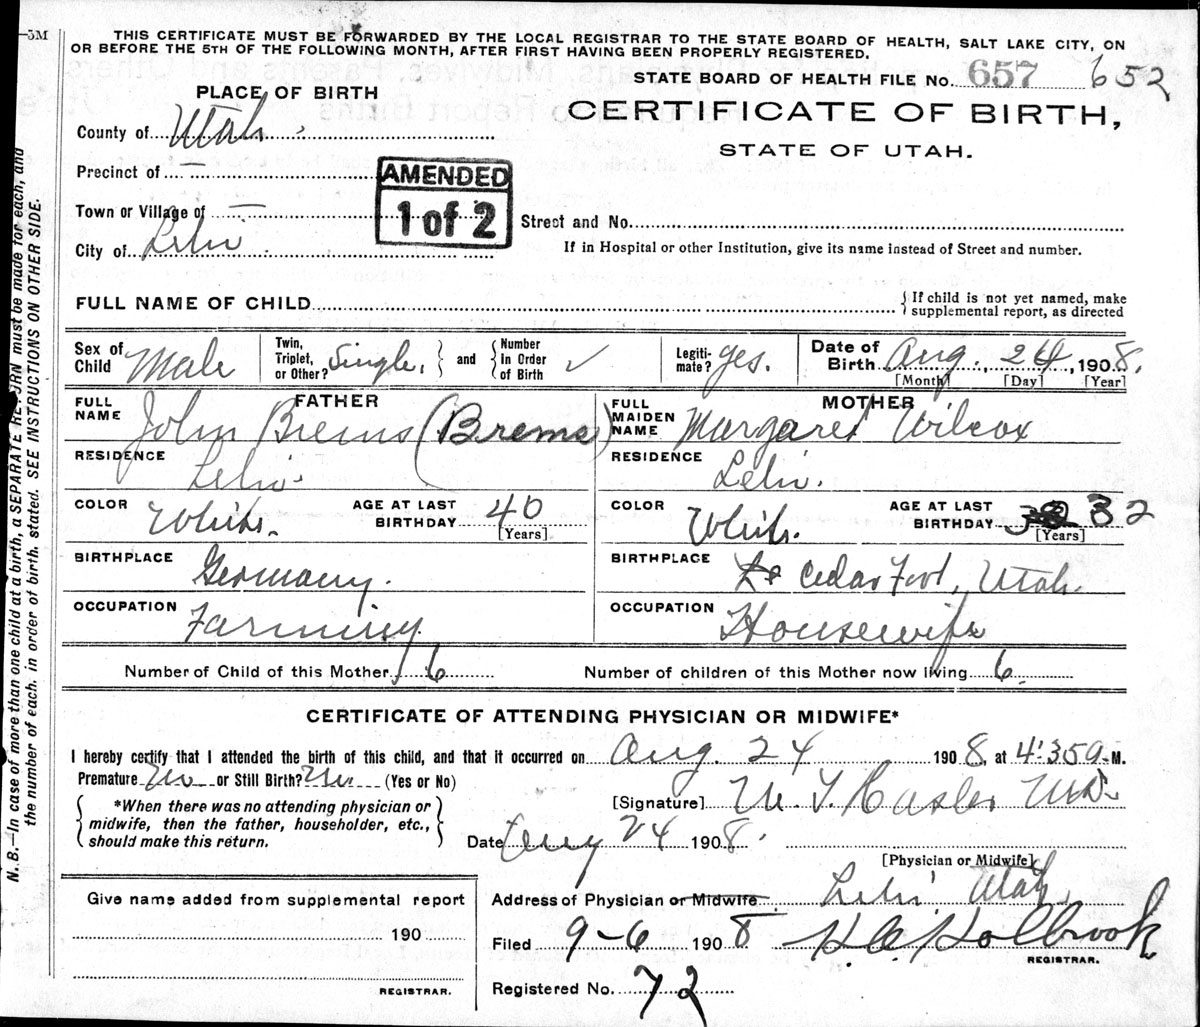 5M
THIS CERTIFICATE MUST BE FORWARDED BY THE LOCAL REGISTRAR TO THE STATE BOARD OF HEALTH, SALT LAKE CITY, ON
OR BEFORE THE 5TH OF THE FOLLOWING MONTH, AFTER FIRST HAVING BEEN PROPERLY REGISTERED.
STATE BOARD OF HEALTH FILE No. 657 652
PLACE OF BIRTH
CERTIFICATE OF BIRTH,
STATE OF UTAH.
County of Utah
Precinct of
AMENDED
1 of 2
Town or Village of —
Street and No.
City of Lehi
If in Hospital or other Institution, give its name instead of Street and number.
FULL NAME OF CHILD
{ If child is not yet named, make
supplemental report, as directed
Sex of Child Male
Twin, Triplet, or Other? Single. } and { Number In Order of Birth ✓
Legiti-mate? yes.
Date of Birth Aug. 24, 1908.
[Month] [Day] [Year]
FATHER
FULL NAME John Brems (Brems)
MOTHER
FULL MAIDEN NAME Margaret Wilcox
RESIDENCE Lehi.
RESIDENCE Lehi.
COLOR White.
AGE AT LAST BIRTHDAY 40
[Years]
COLOR White.
AGE AT LAST BIRTHDAY 32
[Years]
BIRTHPLACE Germany.
BIRTHPLACE Cedar Fort, Utah.
OCCUPATION Farming
OCCUPATION Housewife
Number of Child of this Mother 6
Number of children of this Mother now living 6.
CERTIFICATE OF ATTENDING PHYSICIAN OR MIDWIFE*
I hereby certify that I attended the birth of this child, and that it occurred on Aug. 24 1908, at 4:35 a. M.
Premature No or Still Birth? No (Yes or No)
{ *When there was no attending physician or
midwife, then the father, householder, etc.,
should make this return. }
[Signature] M.D.
Date Aug 24 1908.
[Physician or Midwife]
Give name added from supplemental report
190
REGISTRAR.
Address of Physician or Midwife Lehi Utah
Filed 9-6 1908 Holbrook
REGISTRAR.
Registered No. 72
N. B.—In case of more than one child at a birth, a SEPARATE RETURN must be made for each, and
the number of each, in order of birth, stated. SEE INSTRUCTIONS ON OTHER SIDE.